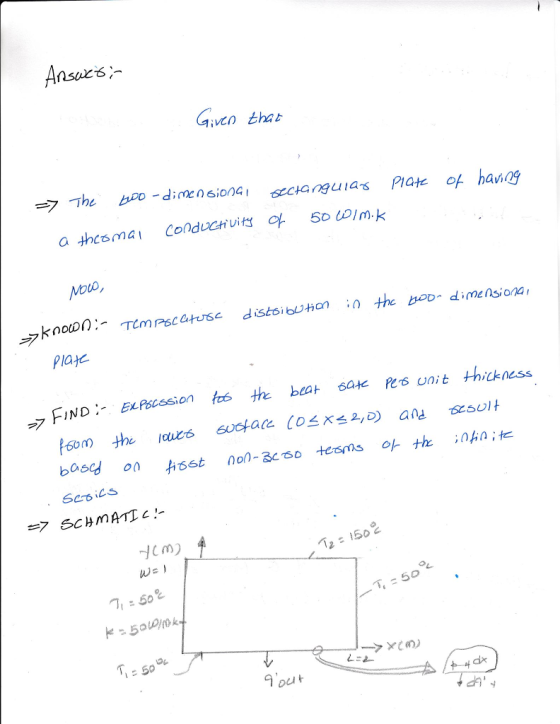 1
Answer:-
Given that
=> The two-dimensional rectangular Plate of having
a thermal conductivity of 50 W/m.k
Now,
=> known:- Temperature distribution in the two-dimensional
Plate
=> FIND:- Expression for the heat rate per unit thickness
from the lower surface (0≤x≤2,0) and result
based on first non-zero terms of the infinite
series
=> SCHMATIC:-
Y(M)
W=1
T₂ = 150°C
T₁ = 50°C
T₁ = 50°C
k = 50W/mk
T₁ = 50°C
q'out
L=2
X(M)
dx
dq'